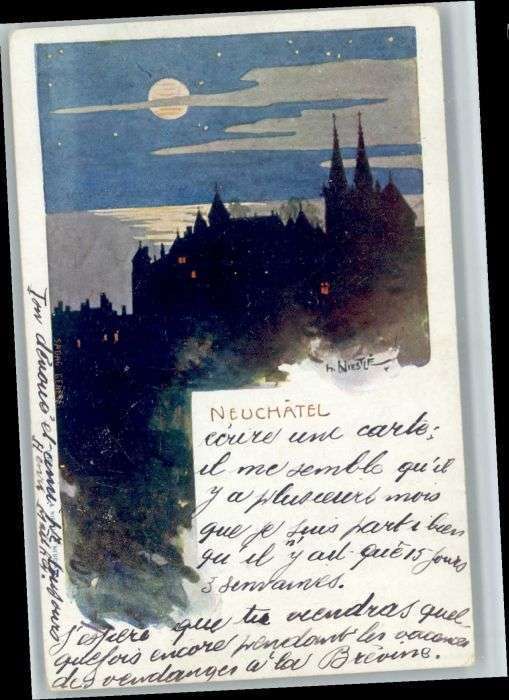 h. NIESTLÉ
NEUCHÂTEL
écrire une carte;
il me semble qu'il
y a plusieurs mois
que je suis parti bien
qu'il n'y ait que 15 jours
3 semaines.
J'espère que tu viendras quel
quefois encore pendant les vacances
des vendanges à la Brévine.
Ton dévoué et ami
Henri